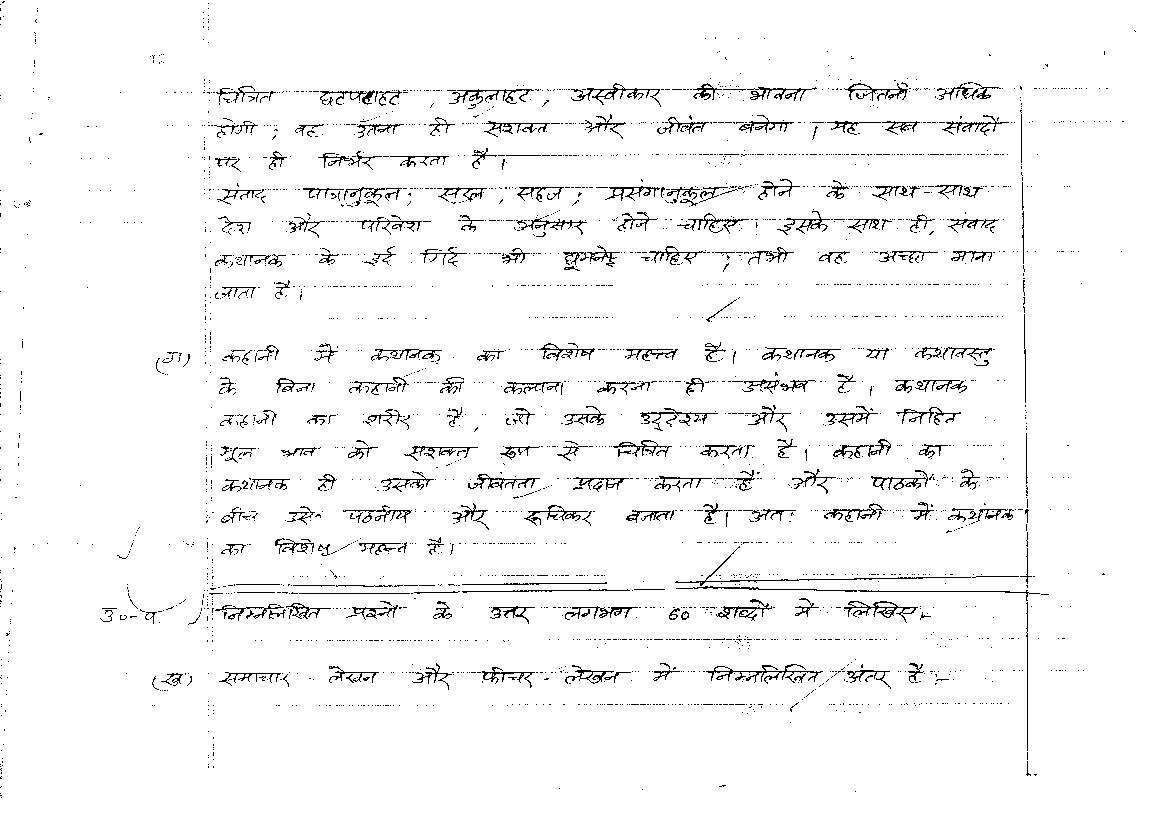 चित्रित छटपटाहट , अकुलाहट , अस्वीकार की भावना जितनी अधिक
होगी , वह उतना ही सशक्त और जीवंत बनेगा , यह सब संवादों
पर ही निर्भर करता है ।
संवाद पात्रानुकूल , सरल , सहज , प्रसंगानुकूल होने के साथ-साथ
देश और परिवेश के अनुसार होने चाहिए । इसके साथ ही, संवाद
कथानक के इर्द गिर्द भी घूमने चाहिए , तभी वह अच्छा माना
जाता है ।
(ग) कहानी में कथानक का विशेष महत्त्व है । कथानक या कथावस्तु
के बिना कहानी की कल्पना करना ही असंभव है । कथानक
कहानी का शरीर है , जो उसके उद्देश्य और उसमें निहित
मूल भाव को सशक्त रूप से चित्रित करता है । कहानी का
कथानक ही उसको जीवंतता प्रदान करता है और पाठकों के
बीच उसे पठनीय और रूचिकर बनाता है । अतः कहानी में कथानक
का विशेष महत्त्व है ।
उ०-५ निम्नलिखित प्रश्नों के उत्तर लगभग 60 शब्दों में लिखिए :-
(ख) समाचार - लेखन और फीचर - लेखन में निम्नलिखित अंतर है :-